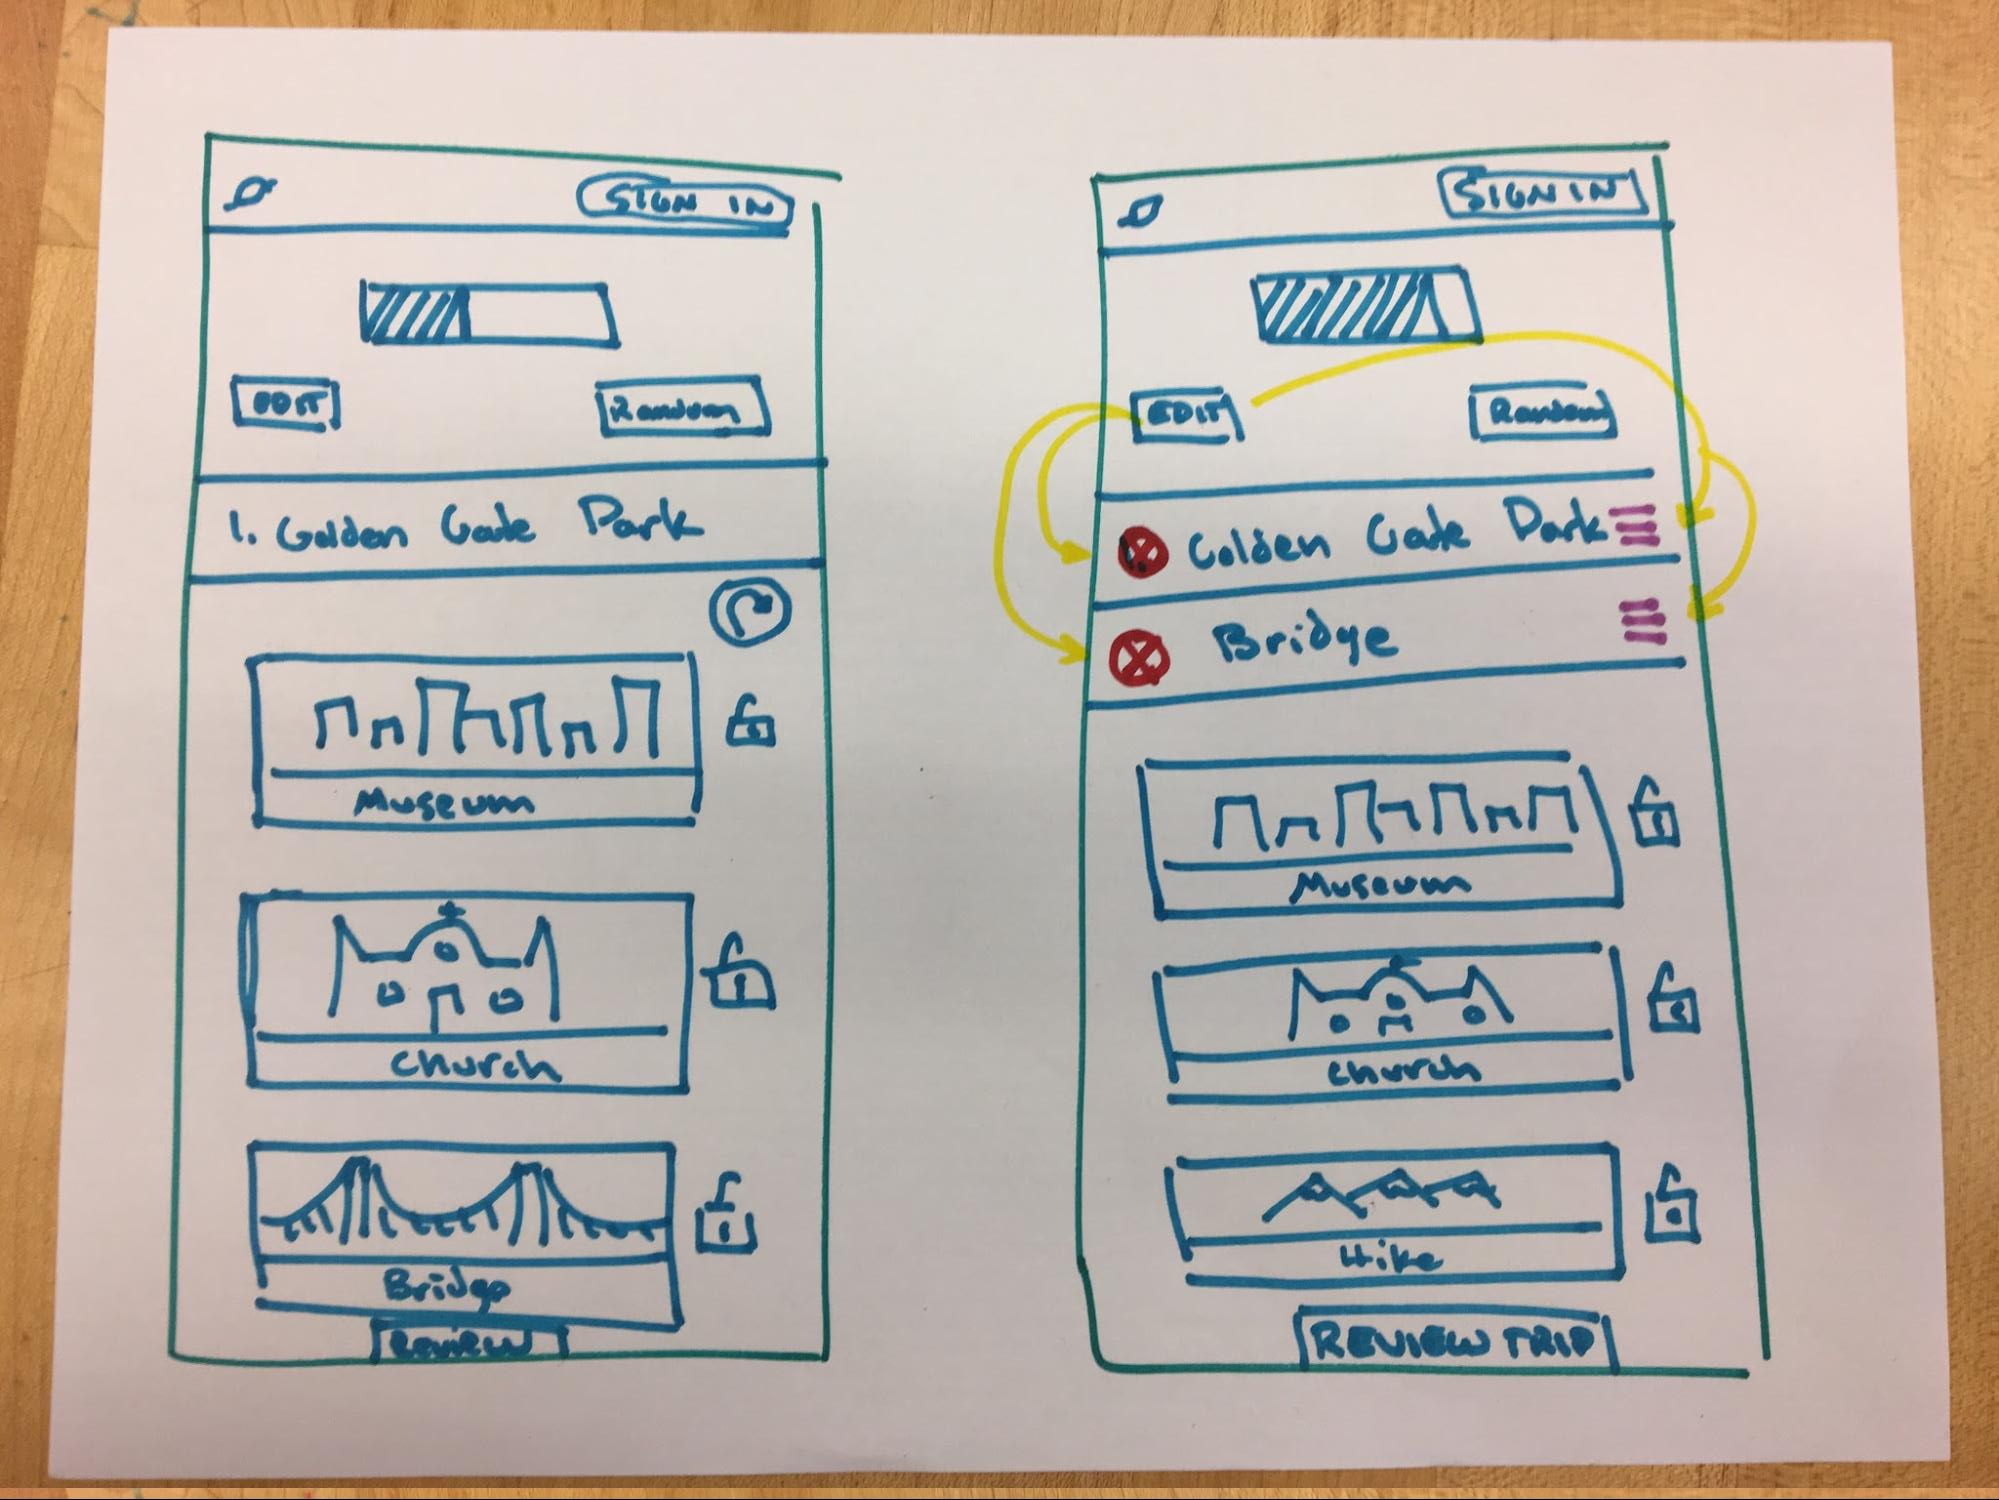 SIGN IN
EDIT
Random
1. Golden Gate Park
Museum
Church
Bridge
REVIEW
SIGN IN
EDIT
Random
Golden Gate Park
Bridge
Museum
Church
Hike
REVIEW TRIP